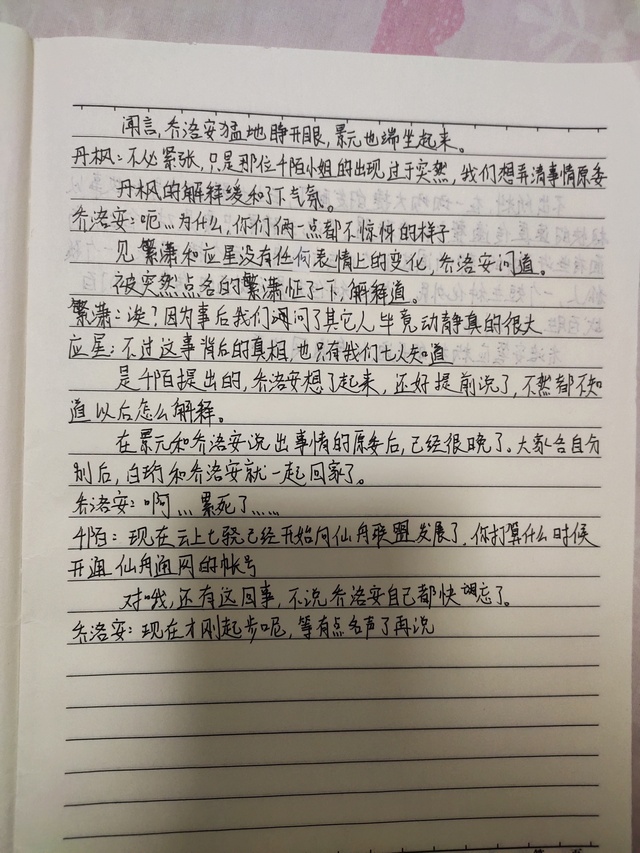 闻言，乔洛安猛地睁开眼，景元也端坐起来。
丹枫：不必紧张，只是那位阡陌小姐的出现过于突然，我们想弄清事情原委
丹枫的解释缓和了下气氛。
乔洛安：呃…为什么，你们俩一点都不惊讶的样子
见繁潇和应星没有任何表情上的变化，乔洛安问道。
被突然点名的繁潇怔了一下，解释道。
繁潇：诶？因为事后我们询问了其它人毕竟动静真的很大
应星：不过这事背后的真相，也只有我们七人知道
是阡陌提出的，乔洛安想了起来，还好提前说了，不然都不知
道以后怎么解释。
在景元和乔洛安说出事情的原委后，已经很晚了。大家各自分
别后，白珩和乔洛安就一起回家了。
乔洛安：啊…累死了……
阡陌：现在云上七骁已经开始向仙舟联盟发展了，你打算什么时候
开通仙舟通网的帐号
对哦，还有这回事，不说乔洛安自己都快遗忘了。
乔洛安：现在才刚起步呢，等有点名声了再说